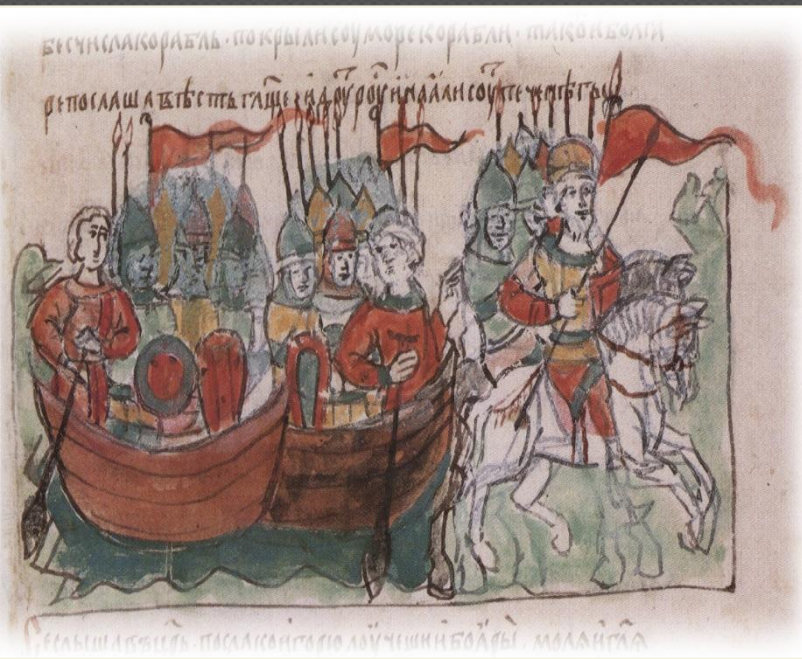 бесчисла корабль · покрыли соу море корабли · тако и болга
ре послаша вѣсть гл҃ще · идоу роу и наꙗли соу печенѣгы
се слышавъ цр҃ь · посла ко игорю лоучешии боꙗры · молѧ и гл҃ѧ